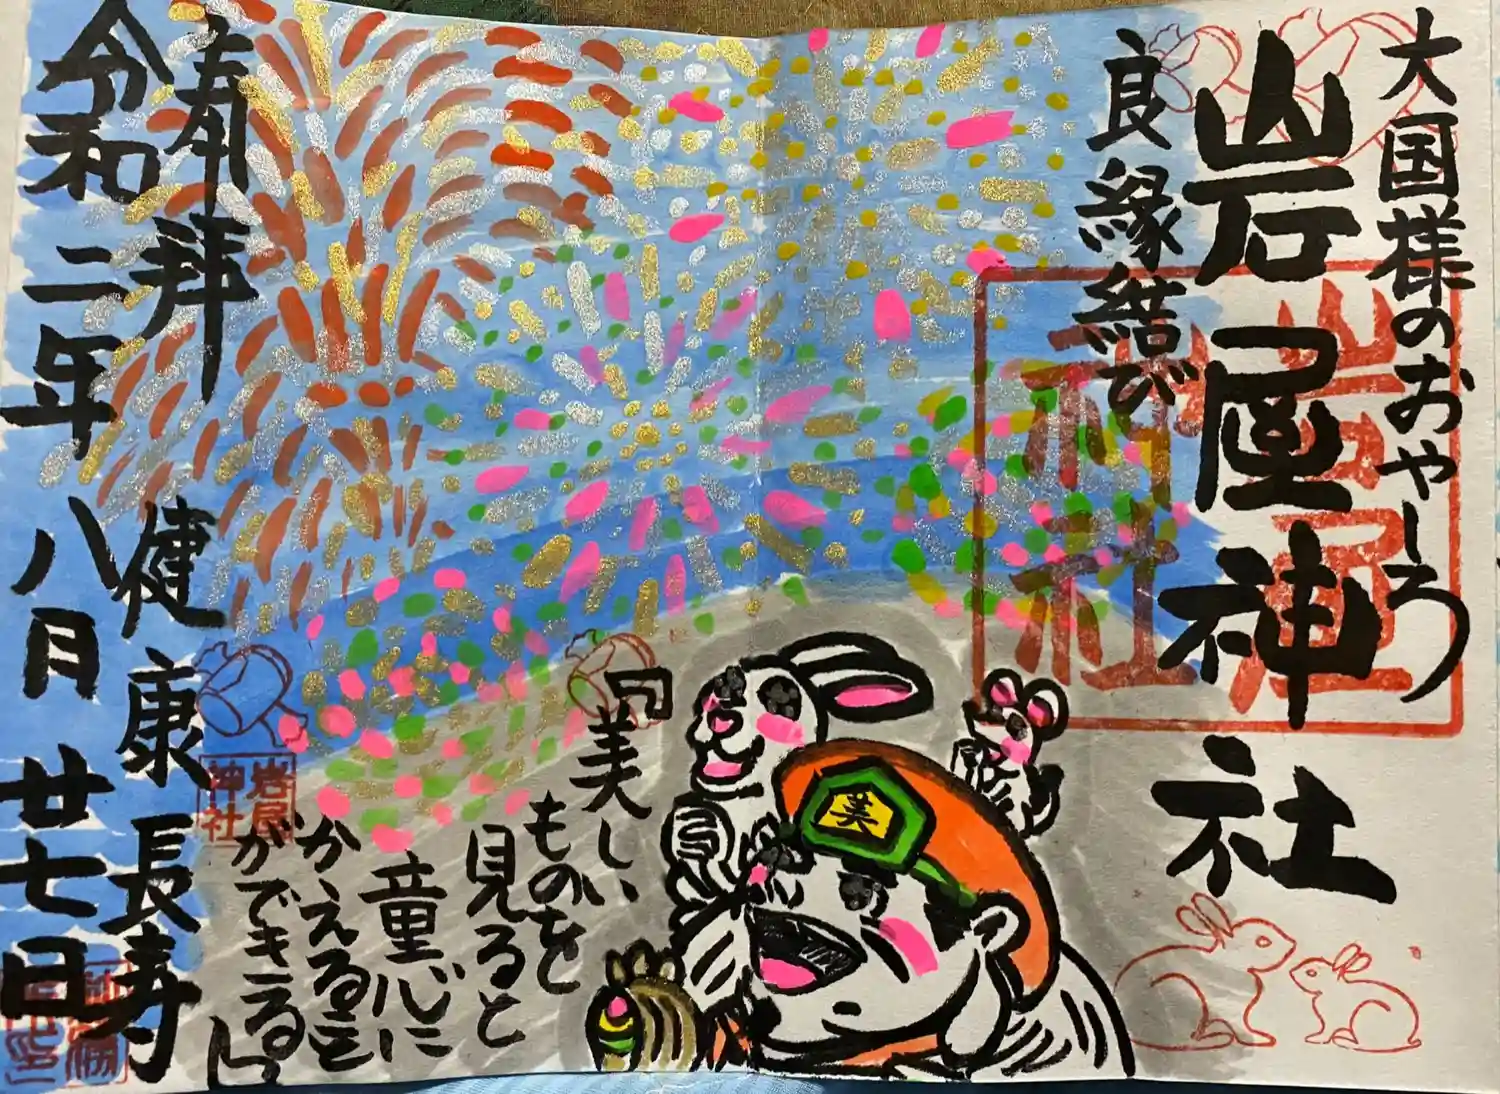 大国様のおやしろ
岩屋神社
良縁結び
岩屋
神社
奉拝
令和二年八月廿七日
健康長寿
「美しい
ものを
見ると
童心に
かえること
ができる」
美
岩屋
神社